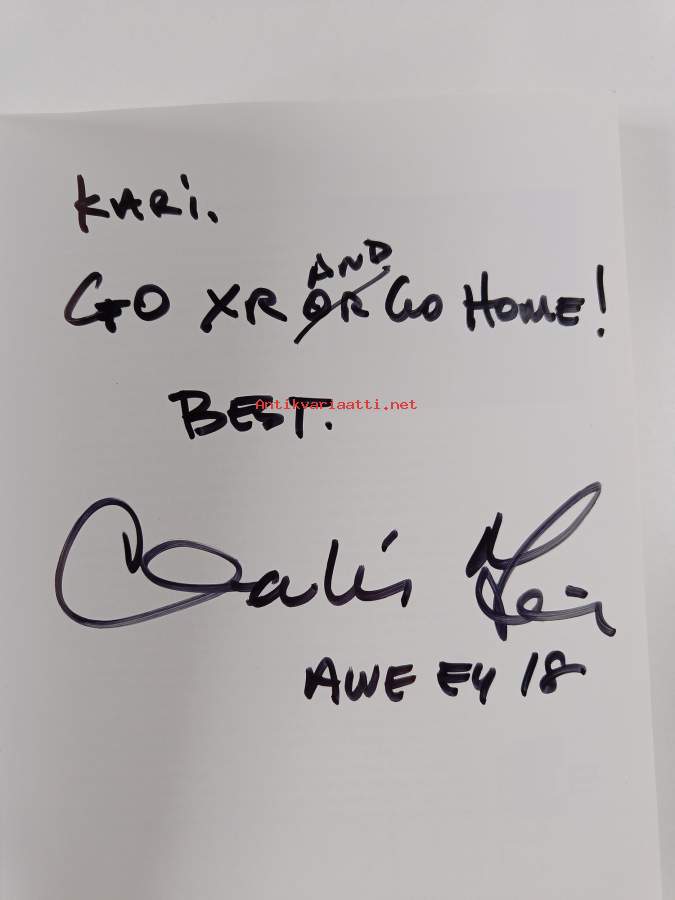 KARI.
AND
GO XR OR GO HOME!
BEST.
Antikvariaatti.net
AWE EU 18